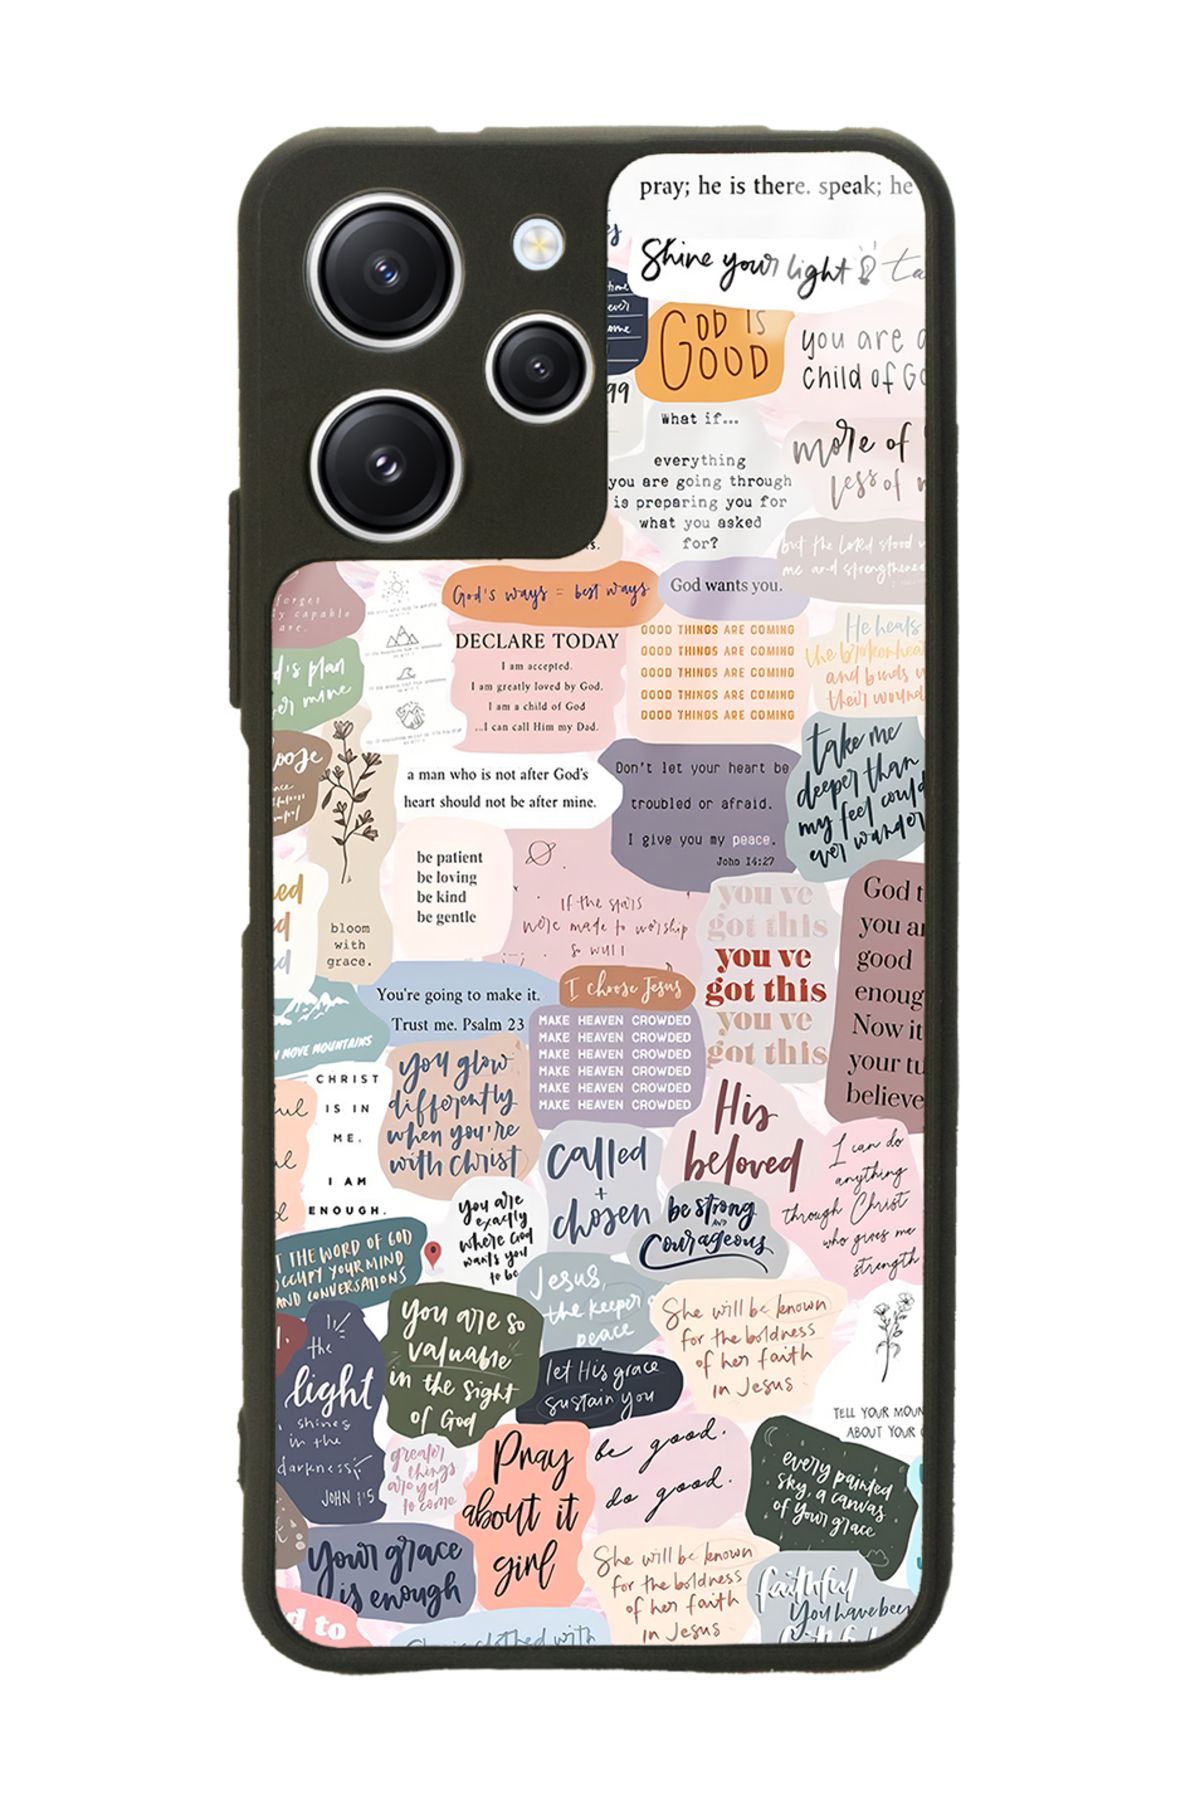 pray; he is there. speak; he
Shine your light
ta
GOD IS
GOOD
you are a
child of Go
99
What if...
everything
you are going through
is preparing you for
what you asked
for?
more of
less of
but the Lord stood w
me and strengthened
God's ways = best ways
God wants you.
forget
ly capable
are.
DECLARE TODAY
I am accepted.
I am greatly loved by God.
I am a child of God
...I can call Him my Dad.
GOOD THINGS ARE COMING
GOOD THINGS ARE COMING
GOOD THINGS ARE COMING
GOOD THINGS ARE COMING
GOOD THINGS ARE COMING
He heals
the brokenhea
and binds u
their wound
d's plan
er mine
a man who is not after God's
heart should not be after mine.
Don't let your heart be
troubled or afraid.
I give you my peace.
John 14:27
take me
deeper than
my feet could
ever wander
oose
be patient
be loving
be kind
be gentle
bloom
with
grace.
if the stars
were made to worship
so will I
you ve
got this
you ve
got this
you ve
got this
God t
you ar
good
enoug
Now it
your tu
believe
You're going to make it.
Trust me. Psalm 23
I choose Jesus
MAKE HEAVEN CROWDED
MAKE HEAVEN CROWDED
MAKE HEAVEN CROWDED
MAKE HEAVEN CROWDED
MAKE HEAVEN CROWDED
MAKE HEAVEN CROWDED
N MOVE MOUNTAINS
CHRIST
IS IN
ME.
I AM
ENOUGH.
you glow
differently
when you're
with Christ
called
+
chosen
His
beloved
I can do
anything
through Christ
who gives me
strength
you are
exactly
where God
wants you
to be
be strong
AND
Courageous
T THE WORD OF GOD
OCCUPY YOUR MIND
AND CONVERSATIONS
Jesus,
the keeper o
peace
She will be known
for the boldness
of her faith
in Jesus
the
light
shines
in the
darkness
JOHN 1:5
you are so
valuable
in the sight
of God
let His grace
sustain you
TELL YOUR MOUN
ABOUT YOUR G
greater
things
are yet
to come
Pray
about it
girl
be good.
do good.
every painted
sky, a canvas
of your grace
Your grace
is enough
She will be known
for the boldness
of her faith
in Jesus
faithful
You have been
d to
She is clothed with